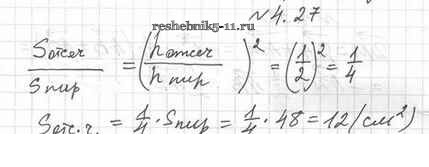 reshebnik5-11.ru
№4.27
Sотсеч/Sпир = (hотсеч/hпир)² = (1/2)² = 1/4
Sотс.ч. = 1/4 · Sпир = 1/4 · 48 = 12 (см²)